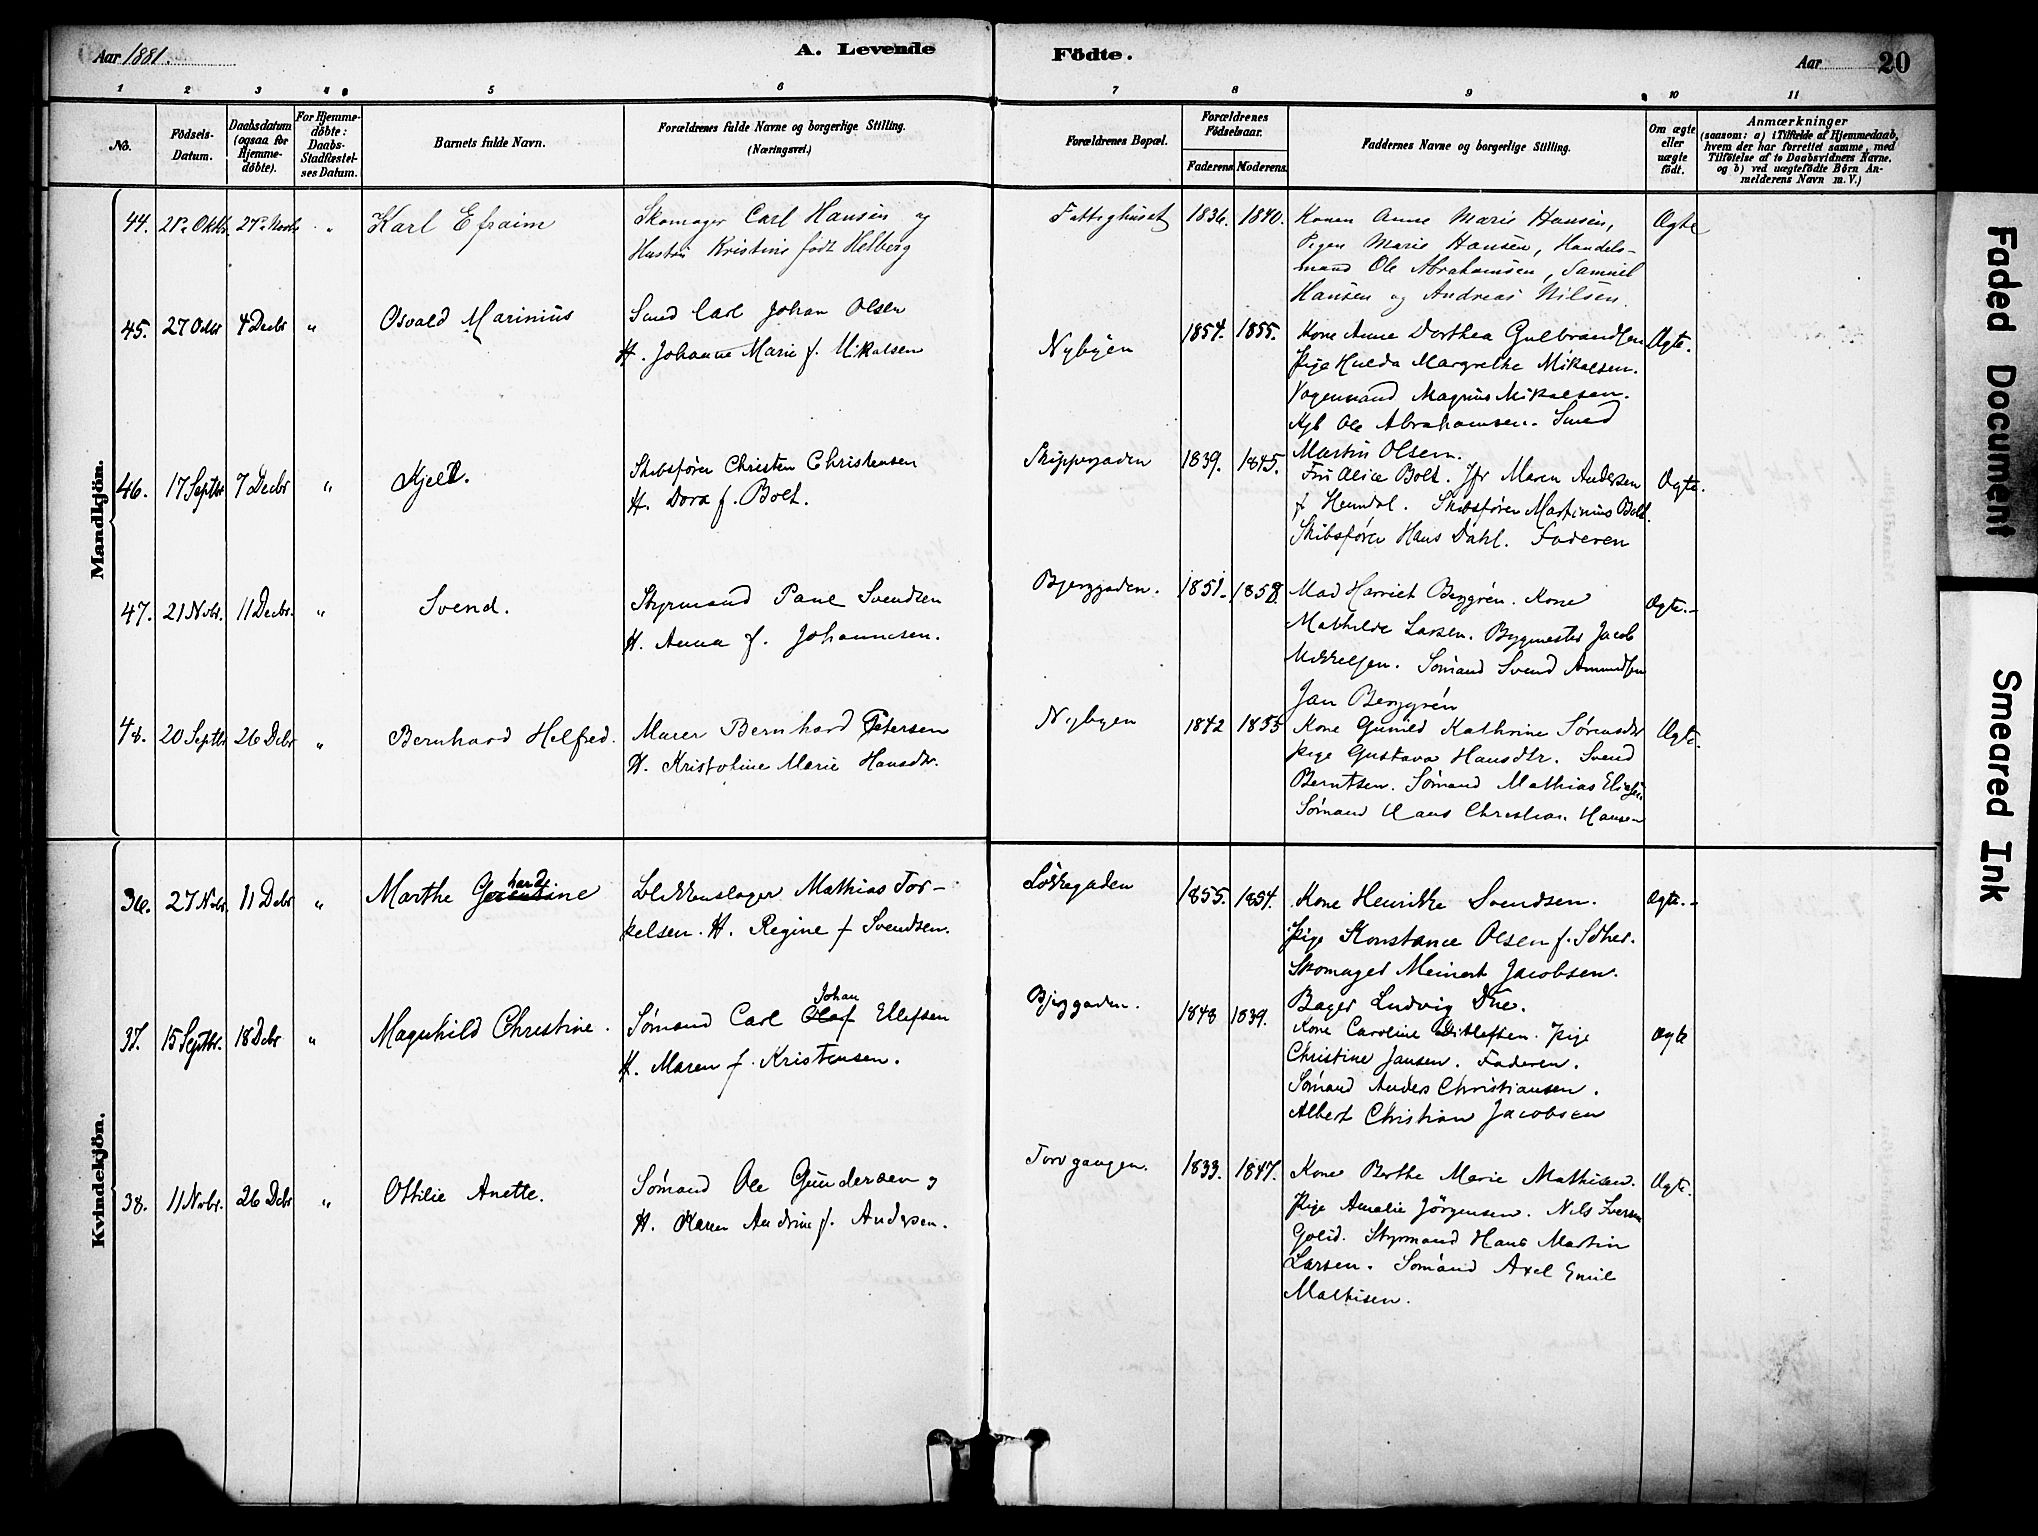 Aar 1881.
A. Levende
Födte.
Aar
20
1 2 3 4 5 6 7 8 9 10 11
No.
Födsels-Datum.
Daabsdatum (ogsaa for Hjemme-döbte).
For Hjemme-döbte: Daabs-Stadfæstel-ses Datum.
Barnets fulde Navn.
Forældrenes fulde Navne og borgerlige Stilling.
(Næringsvei.)
Forældrenes Bopæl.
Forældrenes Födselsaar.
Faderens. Moderens.
Faddernes Navne og borgerlige Stilling.
Om ægte eller uægte födt.
Anmærkninger
(saasom: a) i Tilfælde af Hjemmedaab,
hvem der har forrettet samme, med
Tilföielse af to Daabsvidners Navne.
og b) ved uægtefödte Börn An-
melderens Navn m. V.)
Mandkjön.
44. 21de Oktbr. 27de Novbr " Karl Efraim
Skomager Carl Hansen og
Hustru Kristine født Helberg
Fattighuset 1836. 1840.
Konen Anne Marie Hansen,
Pigen Marie Hansen, Handels-
mand Ole Abrahamsen, Samuel
Hansen og Andreas Nilsen.
Ægte
45. 27 Octbr 4 Decbr " Osvald Marinius
Smed Carl Johan Olsen
H. Johanne Marie f. Mikalsen
Nybyen 1854. 1855.
Kone Anne Dorthea Gulbrandsen
Pige Hulda Margrethe Mikalsen.
Vognmand Magnus Mikalsen.
Kjb Ole Abrahamsen. Smed
Martin Olsen.
Ægte.
46. 17 Septbr 7 Decbr " Kjeld.
Skibsfører Christen Christensen
H. Dora f. Bolt.
Skippergaden 1839. 1845.
Fru Alice Bolt. Jfr Maren Andersen
f Hemdal. Skibsfører Martinius Bolt.
Skibsfører Hans Dahl. Faderen
Ægte.
47. 21 Nvbr. 11 Decbr. " Svend.
Styrmand Paul Svendsen
H. Anna f. Johannesen.
Bjerggaden. 1851. 1858.
Mad Harriet Berggrén. Kone
Mathilde Larsen. Bygmester Jacob
Mikkelsen. Sømand Svend Amundsen
Jan Berggrén
Ægte.
48. 20 Septbr 26 Dcbr " Bernhard Helfred.
Murer Bernhard Petersen
H. Kristofine Marie Hansdtr.
Nybyen 1842 1855
Kone Gunild Kathrine Sørensdtr
Pige Gustava Hansdtr. Svend
Berntsen. Sømand Mathias Eliasen
Sømand Hans Christian Hansen
Ægte.
Kvindekjön.
36. 27 Nvbr. 11 Dcbr " Marthe Gerhardine
Blikkenslager Mathias Tor-
kelsen. H. Regine f Svendsen.
Løkkegaden 1855. 1854.
Kone Henrikke Svendsen.
Pige Konstance Olsen f. Sdher.
Skomager Meinert Jacobsen.
Bager Ludvig Due.
Ægte.
37. 15 Septbr. 18 Dcbr " Magnhild Christine.
Sømand Carl Olaf Johan Ellefsen
H. Maren f. Kristensen.
Bjerggaden. 1848 1839.
Kone Caroline Ditlefsen. Pige
Christine Jansen. Faderen.
Sømand Anders Christiansen.
Albert Christian Jacobsen
Ægte
38. 11 Nvbr. 26 Dcbr " Ottilie Anette.
Sømand Ole Gundersen og
H. Karen Andrine f. Andersen.
Torvgangen. 1833. 1847.
Kone Berthe Marie Mathisen.
Pige Amalie Jörgensen. Nils Iversen
Golid. Styrmand Hans Martin
Larsen. Sømand Axel Emil
Mathisen.
Ægte.
Faded Document
Smeared Ink